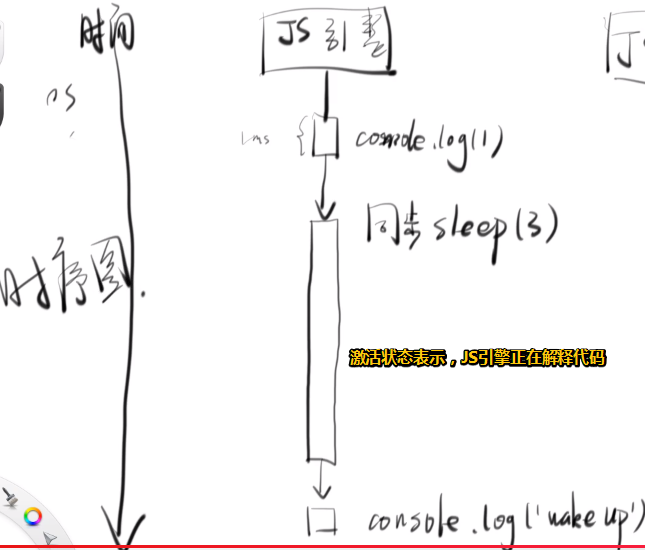 时间
JS 引擎
JS
0s
1ms
console.log(1)
同步 sleep(3)
时序图.
激活状态表示，JS引擎正在解释代码
console.log('wake up')